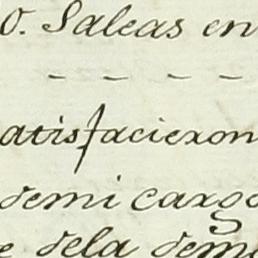 0. Saleas en
atisfacieron
demi cargo
e dela dem